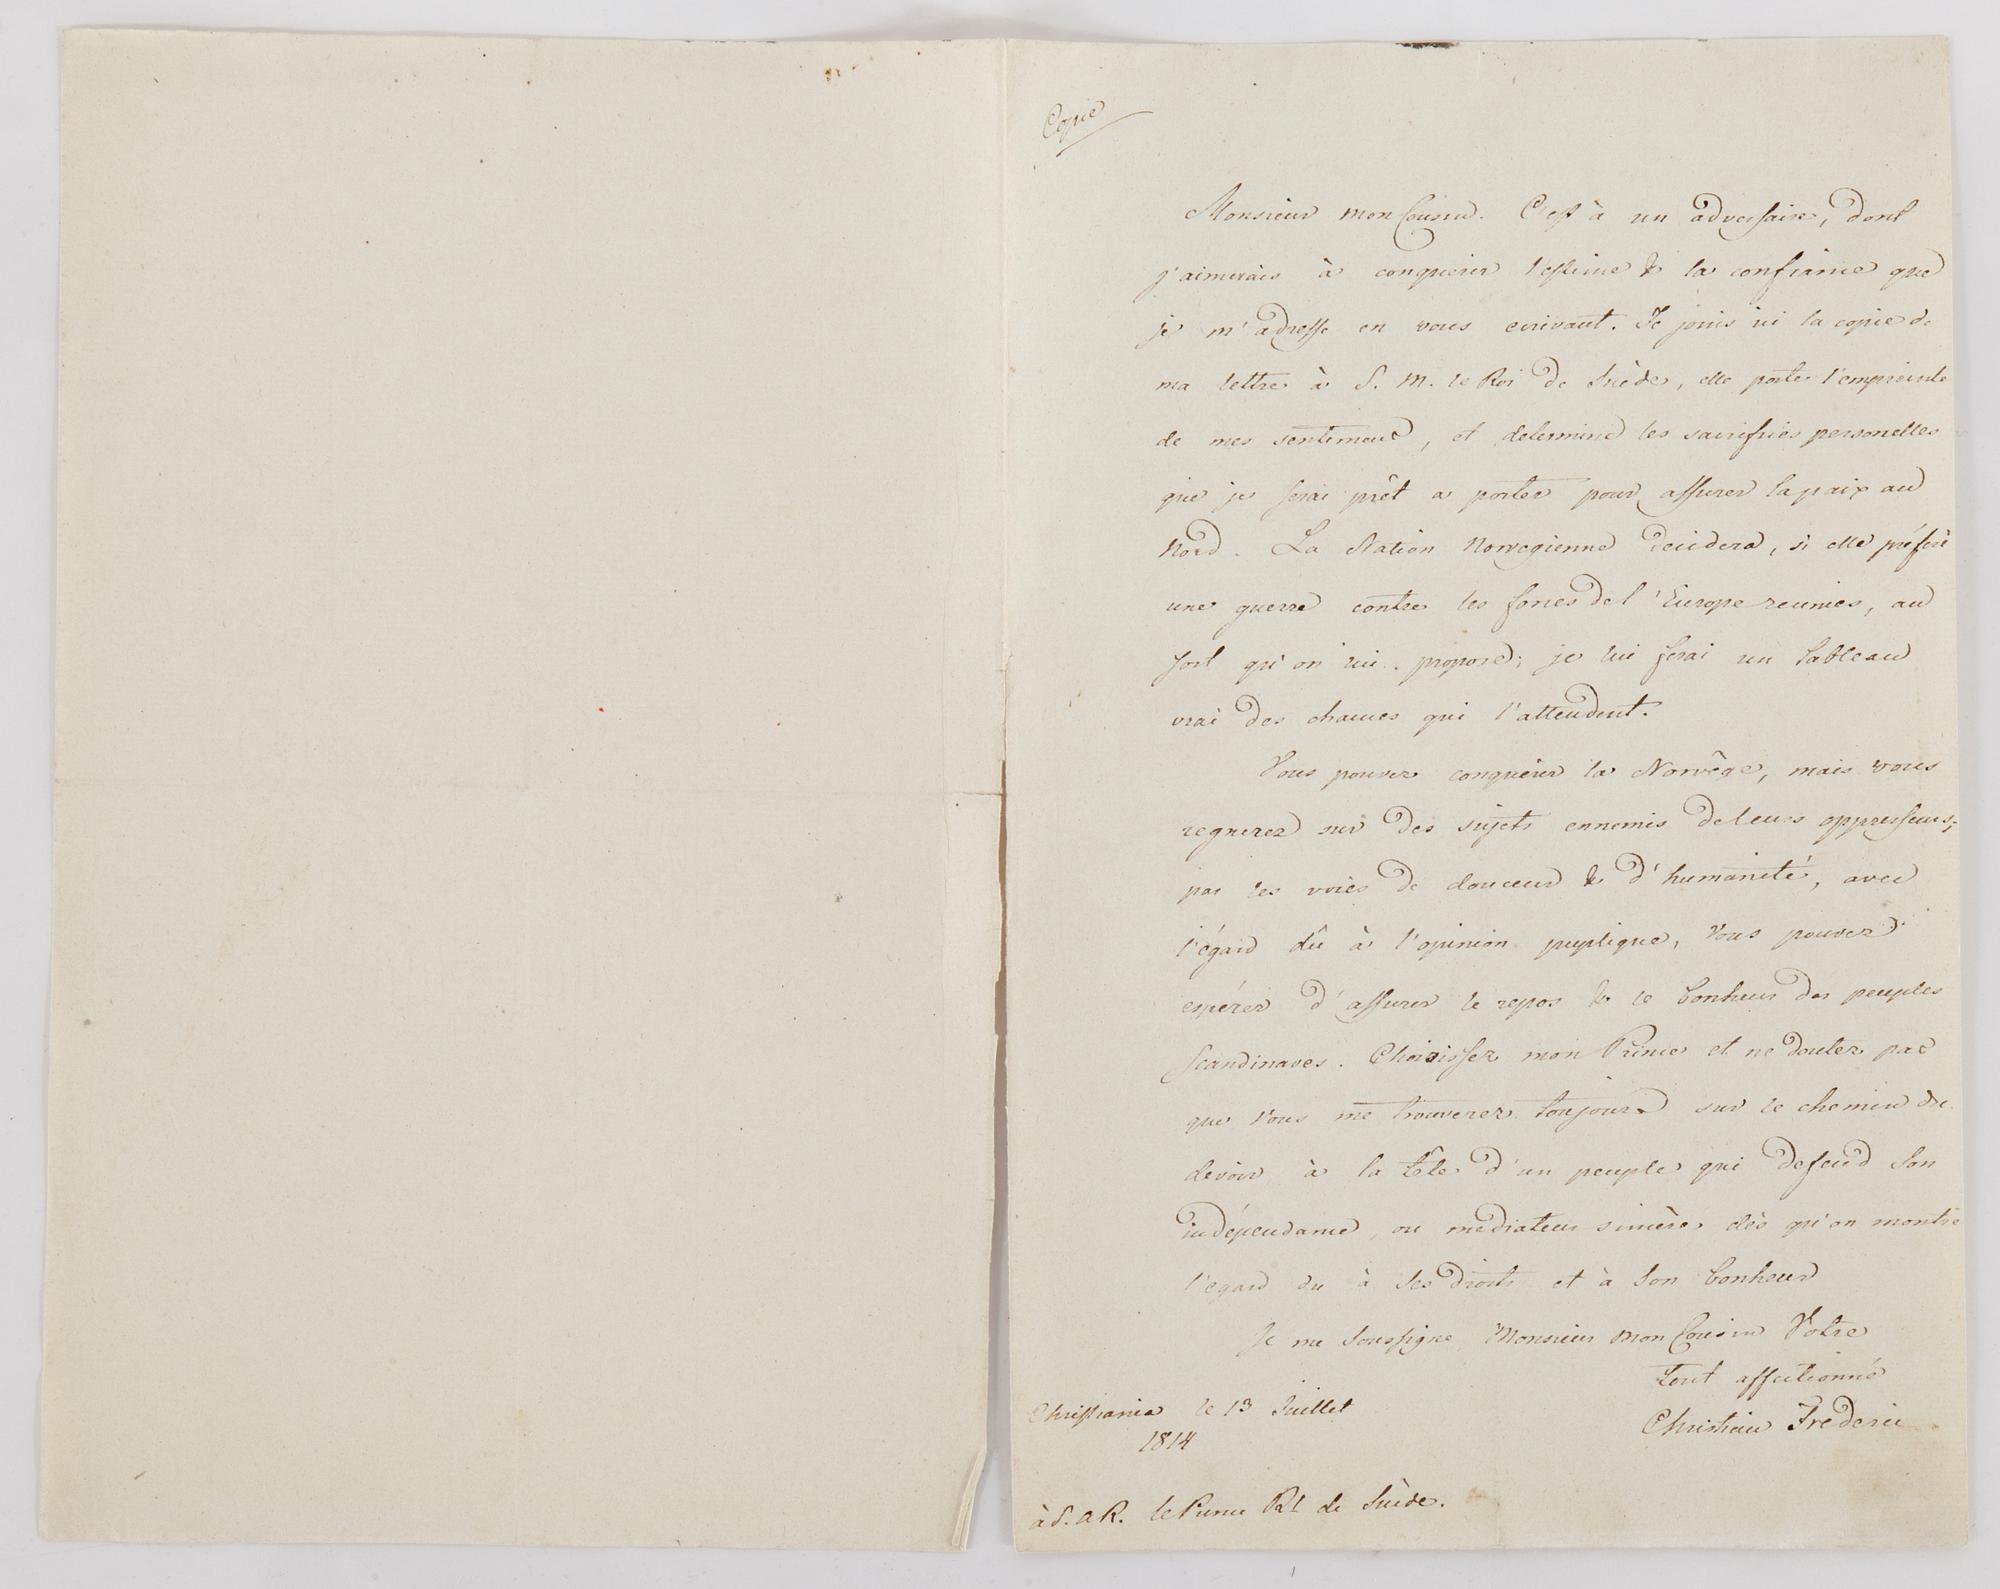 Copie
Monsieur mon Cousin. C'est à un adversaire, dont
j'aimerais à conquerir l'estime & la confiance que
je m'adresse en vous ecrivant. Je joins ici la copie de
ma lettre à S. M. le Roi de Suède, elle porte l'empreinte
de mes sentimens, et determine les sacrifices personelles
que je serai prêt a porter pour assurer la paix au
Nord. La Nation Norvegienne decidera, si elle préfere
une guerre contre les forces de l'Europe reunies, au
sort qu'on lui propose; je lui ferai un tableau
vrai des chances qui l'attendent.
Vous pouvez conquérir la Norvège, mais vous
regnerez sur des sujets ennemis de leurs oppresseurs;
par les voies de douceur & d'humanité, avec
l'égard dû à l'opinion puplique, Vous pouvez
espérer d'assurer le repos & le bonheur des peuples
Scandinaves. Choisissez mon Prince et ne doutez pas
que Vous me trouverez toujours sur le chemin du
devoir à la tête d'un peuple qui defend son
indépendance, ou mediateur sincère dès qu'on montre
l'egard du à ses droits et à son bonheur
Je me soussigne Monsieur mon Cousin Votre
tout affectionné
Christiania le 13 Juillet
1814
Christian Frederic
à S. A R. le Prince Rl de Suède.